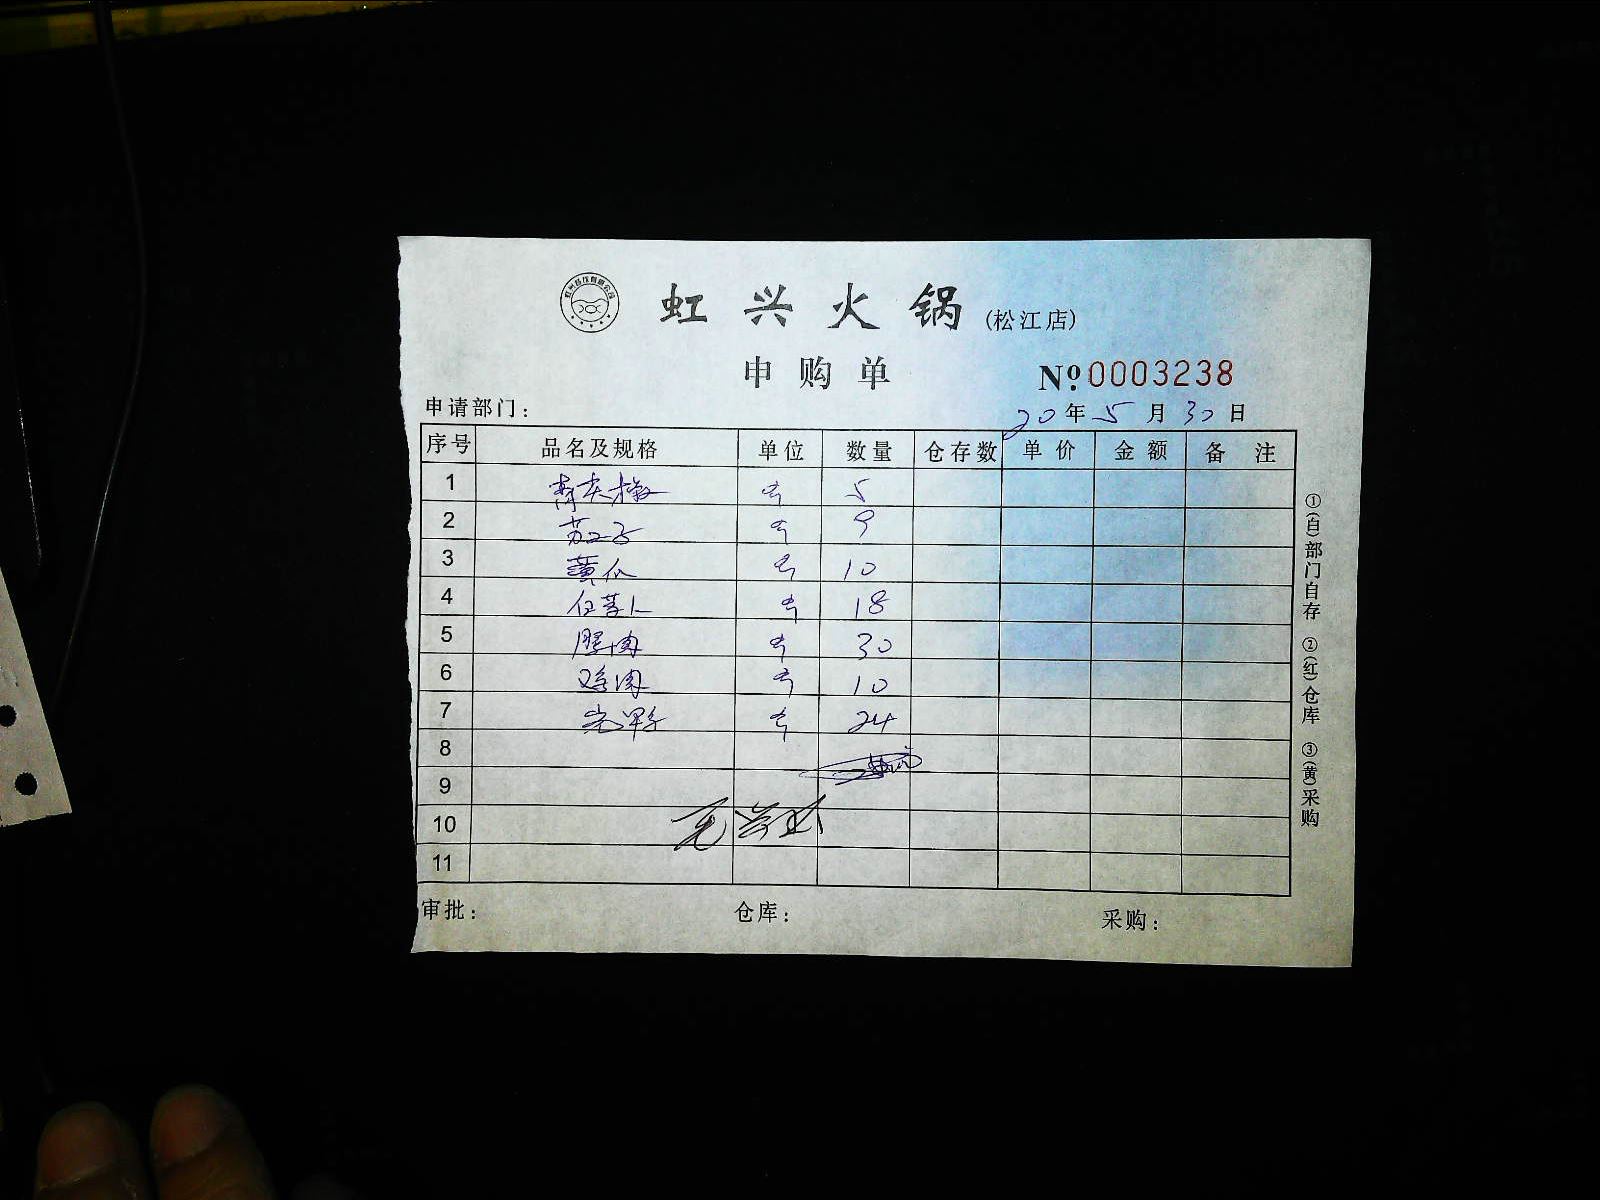 虹兴火锅(松江店)
申购单 Nº 0003238
申请部门: 20年5月30日
序号 品名及规格 单位 数量 仓存数 单价 金额 备注
1 青尖椒 斤 5
2 茄子 斤 9
3 黄瓜 斤 10
4 白萝卜 斤 18
5 腿肉 斤 30
6 鸡肉 斤 10
7 斤 24
8
9
10
11
审批: 仓库: 采购:
①(白)部门自存 ②(红)仓库 ③(黄)采购